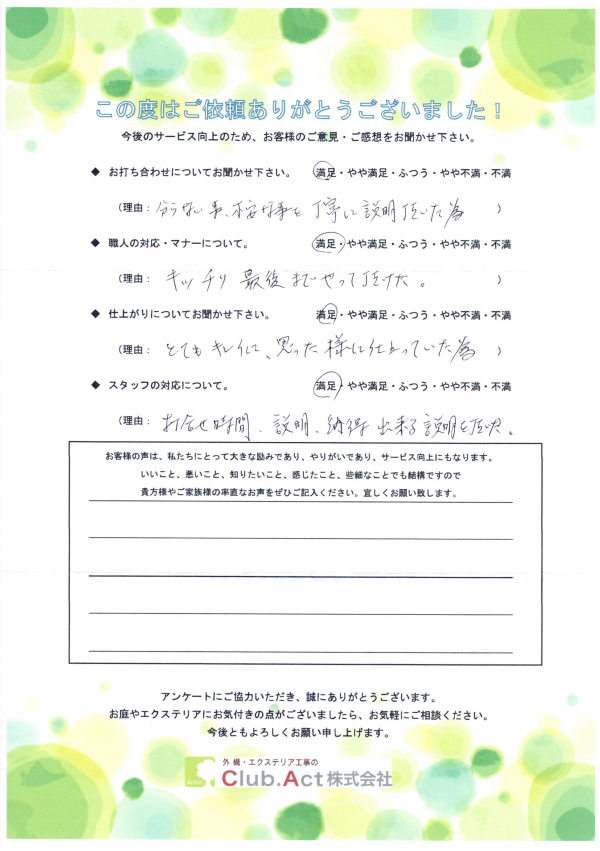 この度はご依頼ありがとうございました！
今後のサービス向上のため、お客様のご意見・ご感想をお聞かせ下さい。
◆ お打ち合わせについてお聞かせ下さい。 満足・やや満足・ふつう・やや不満・不満
(理由：分らない事、不安な事を丁寧に説明頂いた為 )
◆ 職人の対応・マナーについて。 満足・やや満足・ふつう・やや不満・不満
(理由： キッチリ最後までやって頂けた。 )
◆ 仕上がりについてお聞かせ下さい。 満足・やや満足・ふつう・やや不満・不満
(理由： とてもキレイに、思った様に仕上っていた為 )
◆ スタッフの対応について。 満足・やや満足・ふつう・やや不満・不満
(理由： お合せ時間、説明、納得出来る説明を頂た。
お客様の声は、私たちにとって大きな励みであり、やりがいであり、サービス向上にもなります。
いいこと、悪いこと、知りたいこと、感じたこと、些細なことでも結構ですので
貴方様やご家族様の率直なお声をぜひご記入ください。宜しくお願い致します。
アンケートにご協力いただき、誠にありがとうございます。
お庭やエクステリアにお気付きの点がございましたら、お気軽にご相談ください。
今後ともよろしくお願い申し上げます。
外構・エクステリア工事の
Club.Act株式会社